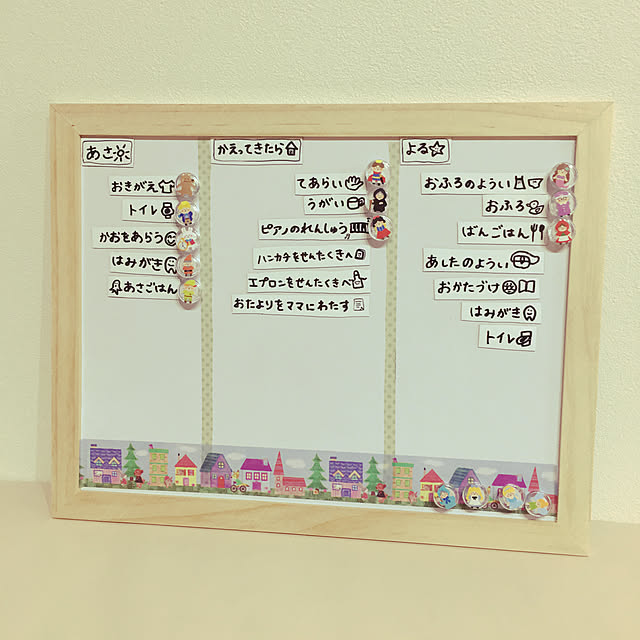 あさ
おきがえ
トイレ
かおをあらう
はみがき
あさごはん
かえってきたら
てあらい
うがい
ピアノのれんしゅう
ハンカチをせんたくきへ
エプロンをせんたくきへ
おたよりをママにわたす
よる
おふろのようい
おふろ
ばんごはん
あしたのようい
おかたづけ
はみがき
トイレ